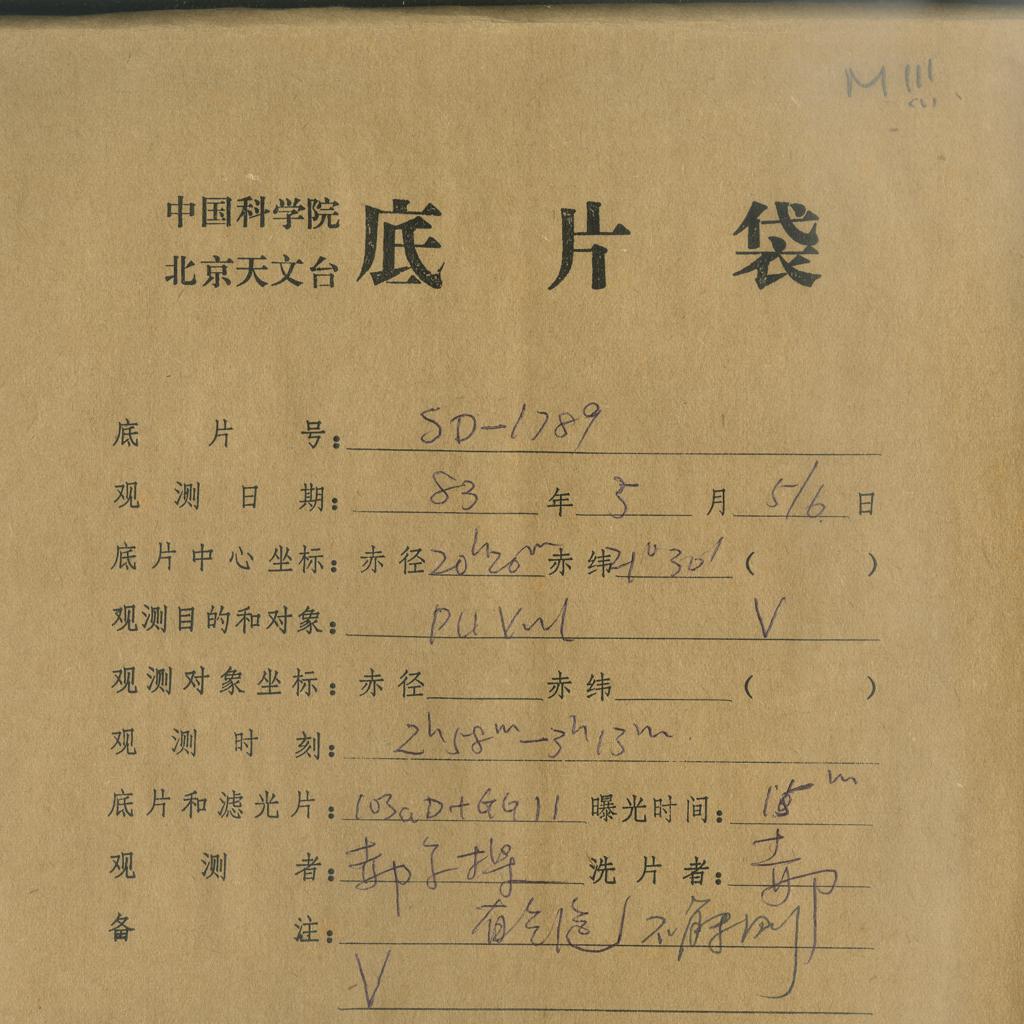 M 111
(1)
中国科学院
北京天文台
底片袋
底片号: SD-1789
观测日期: 83 年 5 月 5/6 日
底片中心坐标: 赤径 20h20m 赤纬 21°30′ ( )
观测目的和对象: PU Vul V
观测对象坐标: 赤径 赤纬 ( )
观测时刻: 2h58m-3h13m
底片和滤光片: 103aD+GG11 曝光时间: 15m
观测者: 洗片者:
备注: 有气泡
V